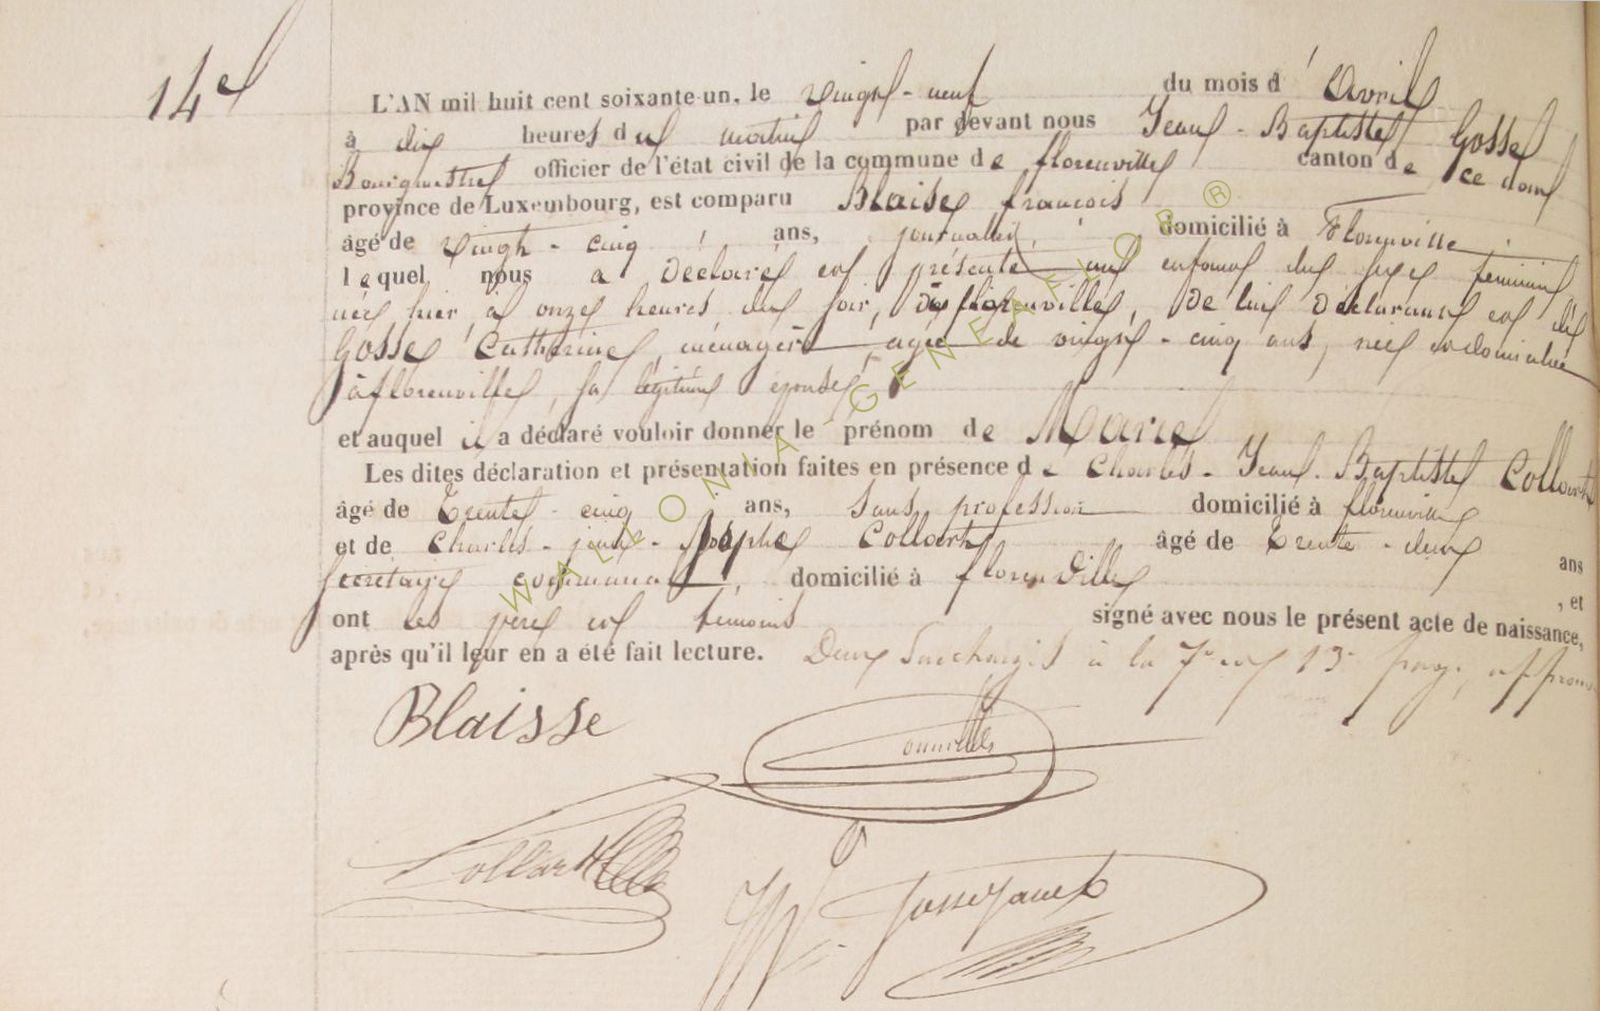 14e
L'AN mil huit cent soixante-un, le vingt-neuf du mois d'Avril
à dix heures du matin par devant nous Jean-Baptiste Gosse
Bourgmestre officier de l'état civil de la commune de florenville canton de ce nom
province de Luxembourg, est comparu Blaise françois
âgé de vingt-cinq ans, journalier, domicilié à Florenville,
lequel nous a déclaré et présenté un enfant du sexe féminin
née hier, à onze heures du soir, à florenville, de lui déclarant et de
Gosse Catherine, ménagère, agée de vingt-cinq ans, née et domiciliée
à florenville, sa légitime épouse,
et auquel il a déclaré vouloir donner le prénom de Marie
Les dites déclaration et présentation faites en présence de Charles-Jean-Baptiste Collart
âgé de Trente-cinq ans, sans profession domicilié à florenville
et de Charles-Joseph Collart âgé de Trente-deux ans
secretaire communal, domicilié à florenville, et
ont les père et témoins signé avec nous le présent acte de naissance,
après qu'il leur en a été fait lecture. Deux Surcharges à la 7e et 13e
Blaisse
Collart
WALLONIA-GENEAFLOR ®